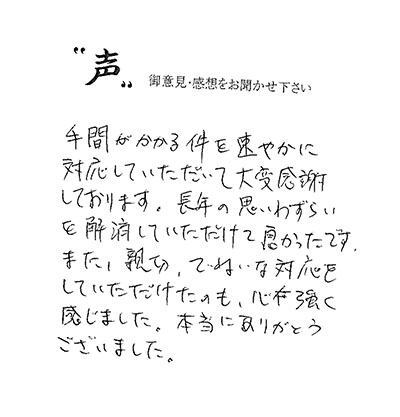 "声" 御意見・感想をお聞かせ下さい
手間がかかる件を速やかに
対応していただいて大変感謝
しております。長年の思いわずらい
を解消していただけて良かったです。
また、親切、ていねいな対応を
していただけたのも、心強く
感じました。本当にありがとう
ございました。